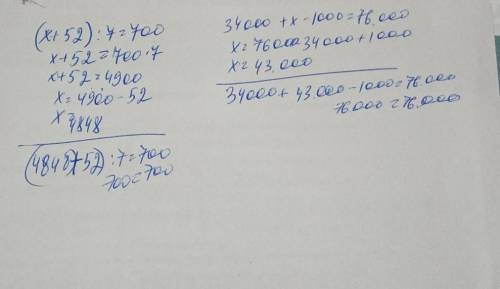 (x+52):7=700
x+52=700·7
x+52=4900
x=4900-52
x=4848
(4848+52):7=700
700=700
34000+x-1000=76.000
x=76000-34000+1000
x=43.000
34000+43.000-1000=76.000
76000=76.000